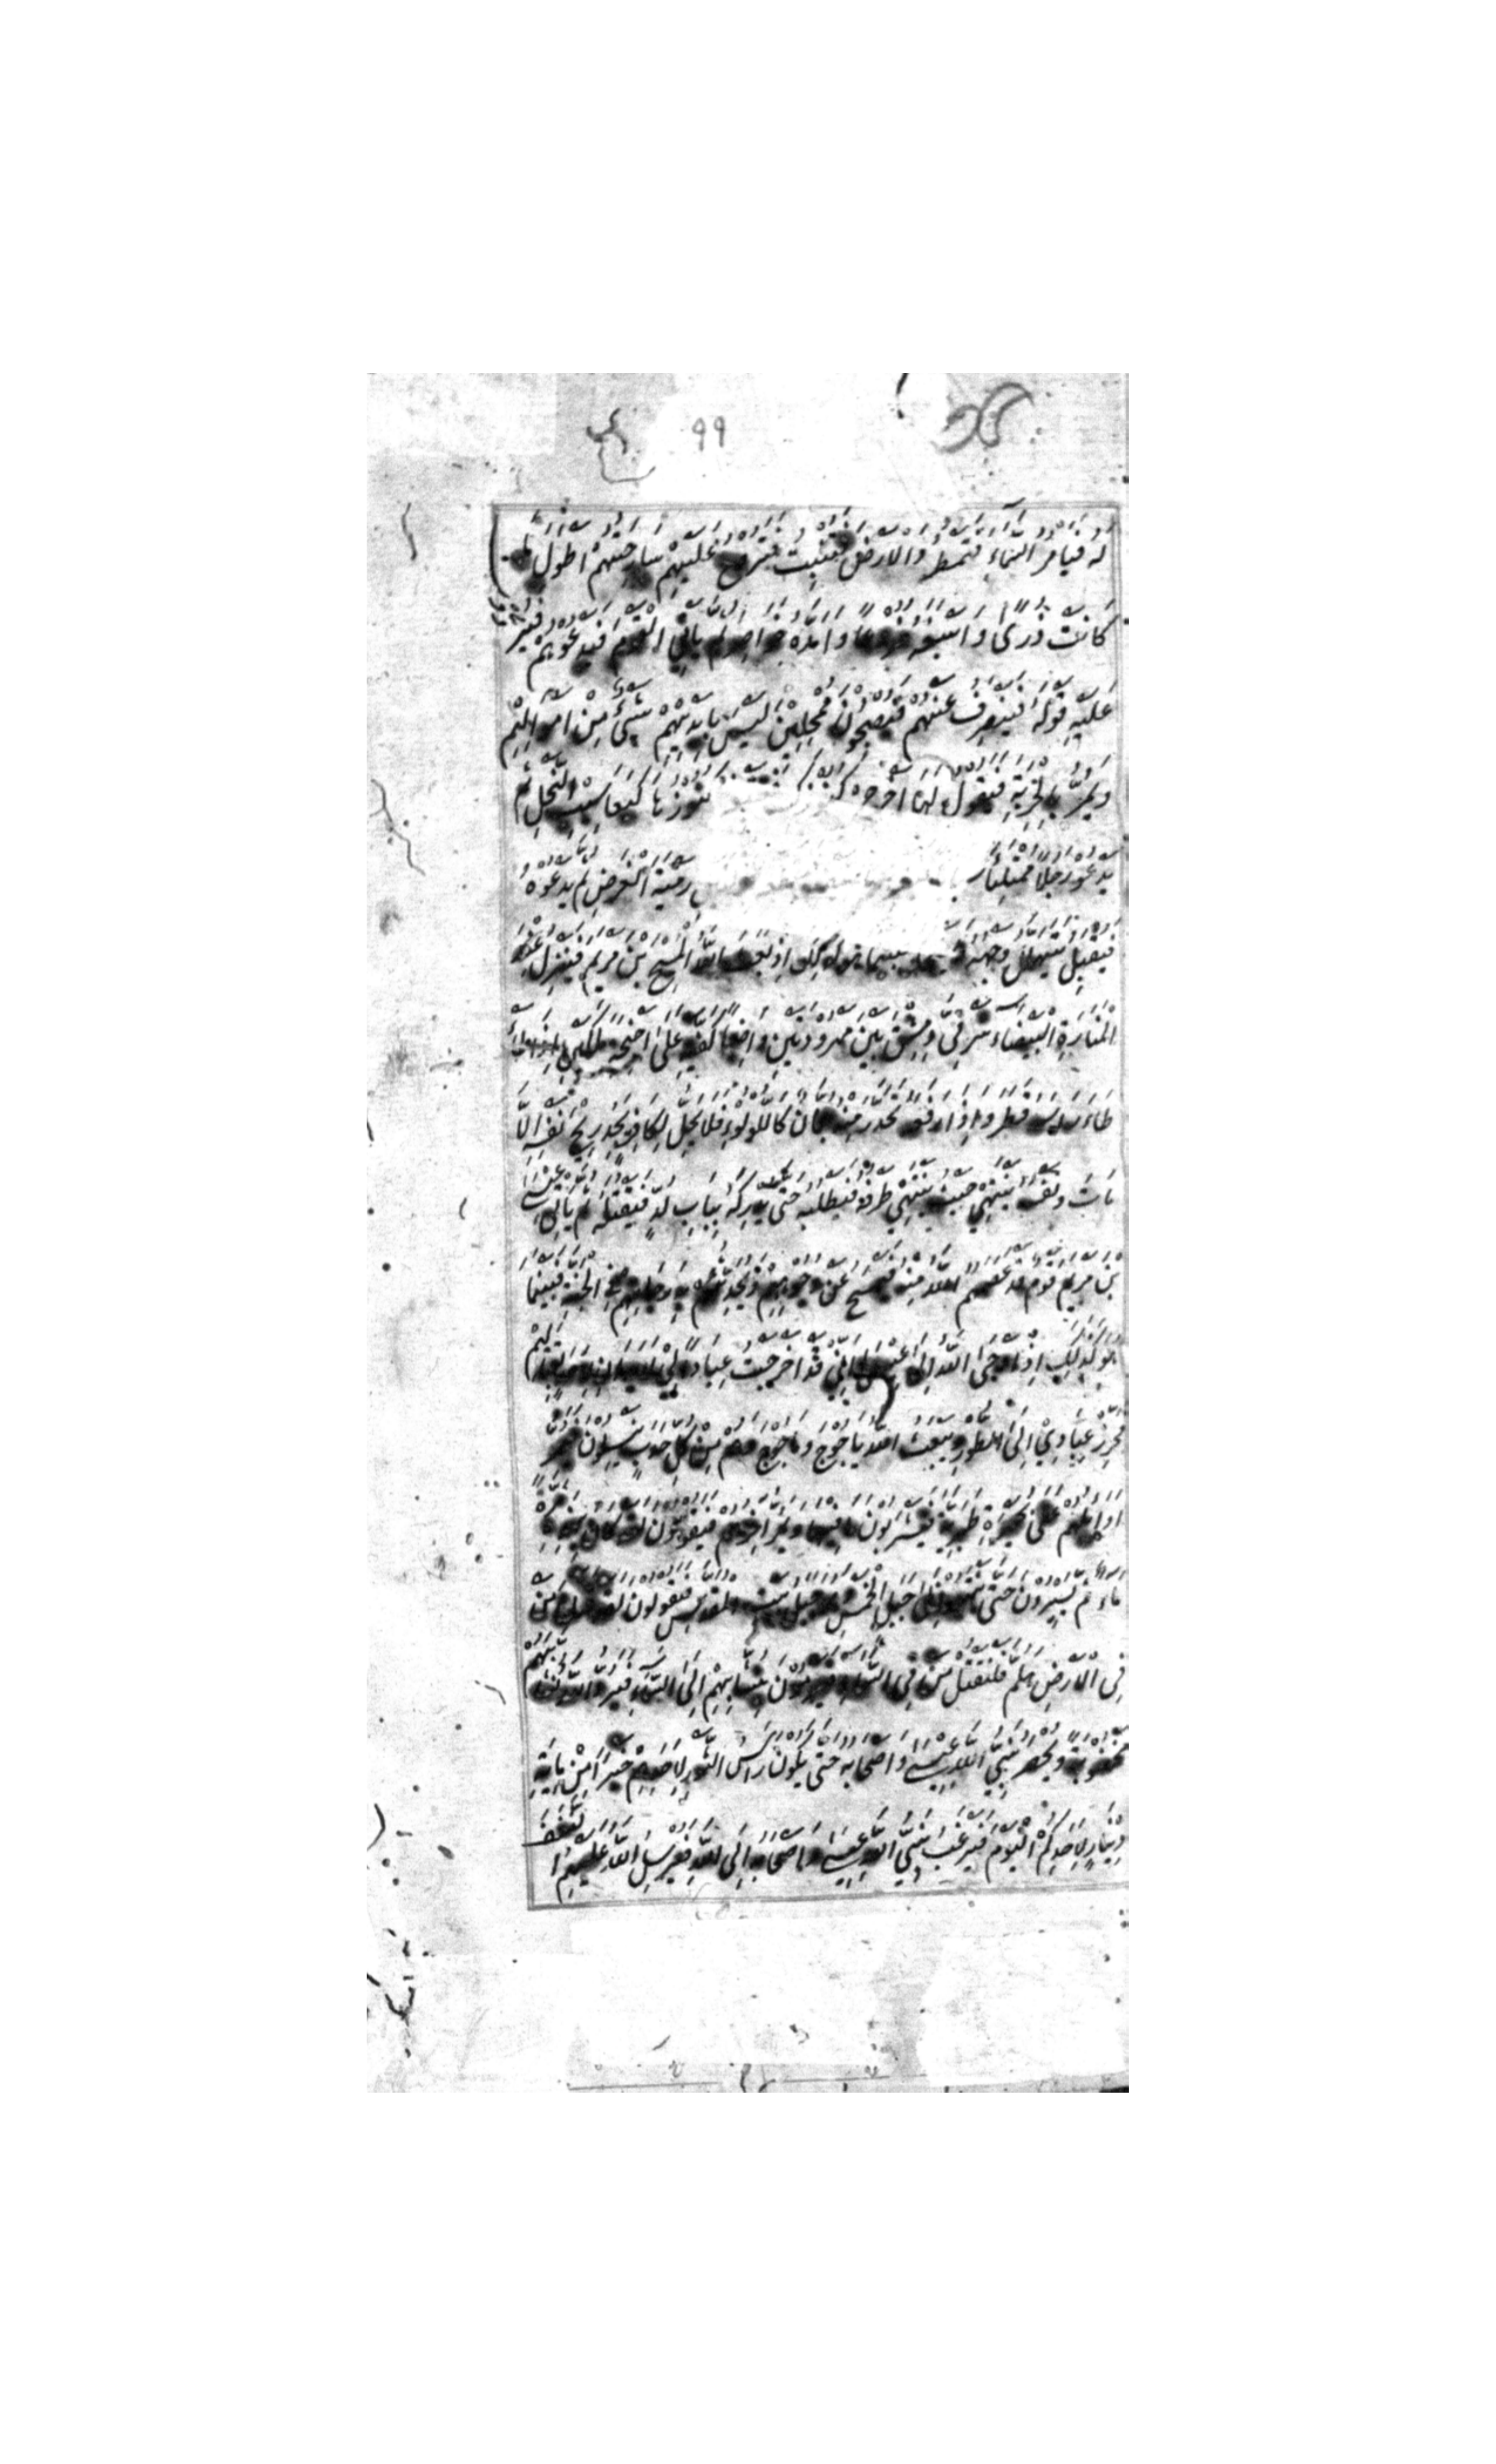 ٩٩
له فيامر السماء فتمطر والارض فتنبت فتروح عليهم سارحتهم اطول ما
كانت ذرى واسبغه ضروعا وامده خواصر ثم ياتي القوم فيدعوهم فيردون
عليه قوله فينصرف عنهم فيصبحون ممحلين ليس بايديهم شيئ من اموالهم
ويمر بالخربة فيقول لها اخرجي كنوزها كيعاسيب النحل ثم
يدعو رجلا ممتليا رمية الغرض ثم يدعوه
فيقبل يتهلل وجهه فبينما هو كذلك اذ بعث الله المسيح بن مريم فينزل عند
المنارة البيضاء شرقي دمشق بين مهرودتين واضعا كفيه على اجنحة ملكين اذا
طاطا راسه قطر واذا رفعه تحدر منه جمان كاللولوء فلا يحل لكافر يجد ريح نفسه الا
مات ونفسه ينتهي حيث ينتهي طرفه فيطلبه حتى يدركه بباب لد فيقتله ثم ياتي عيسى
بن مريم قوم قد عصمهم الله منه فيمسح عن وجوههم ويحدثهم بدرجاتهم في الجنة فبينما
هو كذلك اذ اوحى الله الى عيسى اني قد اخرجت عبادا لي لا يدان لاحد بقتالهم
فحرز عبادي الى الطور ويبعث الله ياجوج وماجوج وهم من كل حدب ينسلون فيمر
اوايلهم على بحيرة طبرية فيشربون ما فيها ويمر اخرهم فيقولون لقد كان بهذه مرة
ماء ثم يسيرون حتى ينتهوا الى جبل الخمر وهو جبل بيت المقدس فيقولون لقد قتلنا من
في الارض هلم فلنقتل من في السماء فيرمون بنشابهم الى السماء فيرد الله نشابهم
مخضوبة ويحصر نبي الله عيسى واصحابه حتى يكون راس الثور لاحدهم خيرا من ماية
دينار لاحدكم اليوم فيرغب نبي الله عيسى واصحابه الى الله فيرسل الله عليهم النغف